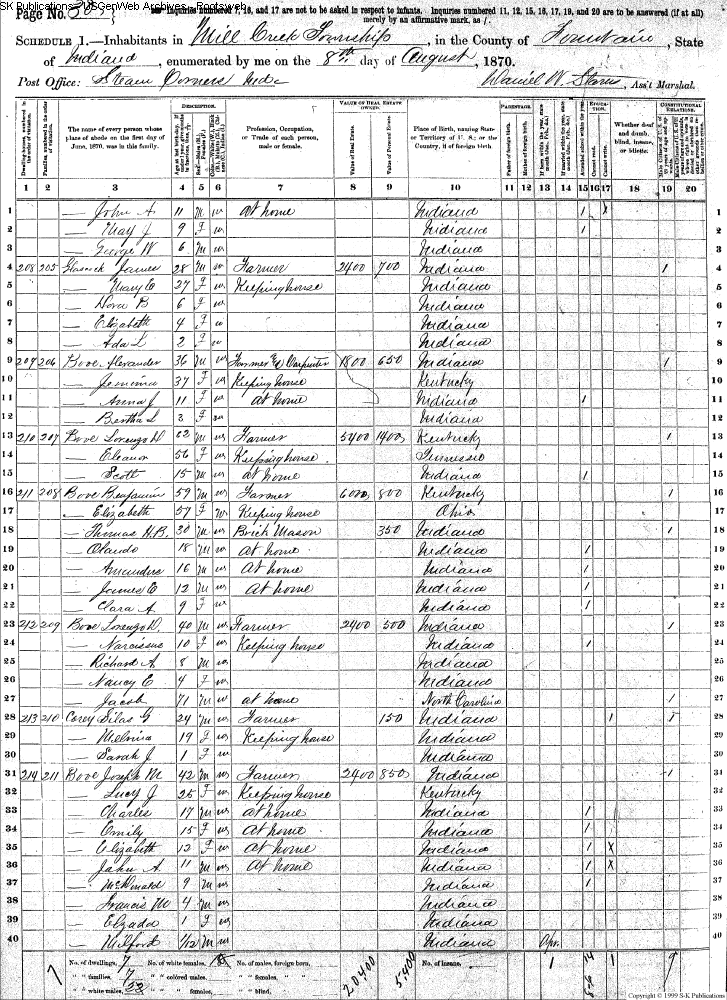 SK Publications/USGenWeb Archives - Rootsweb
Page No. 385
Inquiries numbered 7, 16, and 17 are not to be asked in respect to infants. Inquiries numbered 11, 12, 15, 16, 17, 19, and 20 are to be answered (if at all) merely by an affirmative mark, as /.
SCHEDULE 1.—Inhabitants in Mill Creek Township, in the County of Fountain, State
of Indiana, enumerated by me on the 8th day of August, 1870.
Post Office: Steam Corners Inda
Daniel W. , Ass't Marshal.
DESCRIPTION. VALUE OF REAL ESTATE OWNED. PARENTAGE. EDUCATION. CONSTITUTIONAL RELATIONS.
The name of every person whose place of abode on the first day of June, 1870, was in this family.
Profession, Occupation, or Trade of each person, male or female.
Value of Real Estate.
Value of Personal Estate.
Place of Birth, naming State or Territory of U. S.; or the Country, if of foreign birth.
Father of foreign birth.
Mother of foreign birth.
Attended school within the year.
Cannot read.
Cannot write.
Whether deaf and dumb, blind, insane, or idiotic.
1 2 3 4 5 6 7 8 9 10 11 12 13 14 15 16 17 18 19 20
1 — John A 11 M W At home Indiana / X 1
2 — May J 9 F W Indiana / 2
3 — George W 6 M W Indiana 3
4 208 205 Glascock James 28 M W Farmer 2400 700 Indiana / 4
5 — Mary E 27 F W Keeping house Indiana 5
6 — Nora B 6 F W Indiana 6
7 — Elizabeth 4 F W Indiana 7
8 — Ada L 2 F W Indiana 8
9 209 206 Bove Alexander 36 M W Farmer & Carpenter 1800 650 Indiana / 9
10 — Jemima 37 F W Keeping house Kentucky 10
11 — Anna J 11 F W At home Indiana / 11
12 — Bertha L 2 F W Indiana 12
13 210 207 Bove Lorenzo D 62 M W Farmer 5400 1400 Kentucky / 13
14 — Eleanor 56 F W Keeping house Tennessee 14
15 — Scott 15 M W At home Indiana / 15
16 211 208 Bove Benjamin 59 M W Farmer 6000 800 Kentucky / 16
17 — Elizabeth 57 F W Keeping house Ohio 17
18 — Thomas H.B. 30 M W Brick Mason 350 Indiana / 18
19 — Olando 18 M W At home Indiana / 19
20 — Amandus 16 M W At home Indiana / 20
21 — James E 12 M W At home Indiana / 21
22 — Clara A 9 F W Indiana / 22
23 212 209 Bove Lorenzo D. 40 M W Farmer 2400 500 Indiana / 23
24 — Narcissus 10 F W Keeping house Indiana / 24
25 — Richard A 8 M W Indiana 25
26 — Nancy E 4 F W Indiana 26
27 — Jacob 71 M W At home North Carolina / 27
28 213 210 Corey Silas G 24 M W Farmer 150 Indiana / / 28
29 — Melvina 19 F W Keeping house Indiana 29
30 — Sarah J 1 F W Indiana 30
31 214 211 Bove Joseph M 42 M W Farmer 2400 850 Indiana / 31
32 — Lucy J 25 F W Keeping house Kentucky 32
33 — Charles 17 M W At home Indiana / 33
34 — Emily 15 F W At home Indiana / 34
35 — Elizabeth 13 F W At home Indiana / X 35
36 — John A 11 M W At home Indiana / X 36
37 — McDonald 9 M W Indiana / 37
38 — Francis M 4 M W Indiana 38
39 — Elzada 1 F W Indiana 39
40 — Milford 1/12 M W Indiana Apr. 40
No. of dwellings, 7 No. of white females, 18 No. of males, foreign born, 20,400 5,400 No. of insane, 1 14 1 9
" " families, 7 " " colored males, " " females, "
" " white males, 22 " " " females, " " blind,
Copyright © 1999 S-K Publications